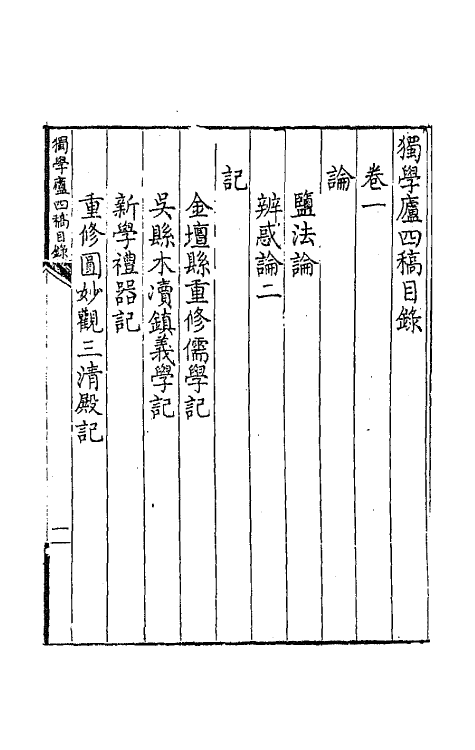 獨學廬四稿目錄
卷一
論
鹽法論
辨惑論二
記
金壇縣重修儒學記
吳縣木瀆鎮義學記
新學禮器記
重修圓妙觀三清殿記
獨學廬四稿目錄
一